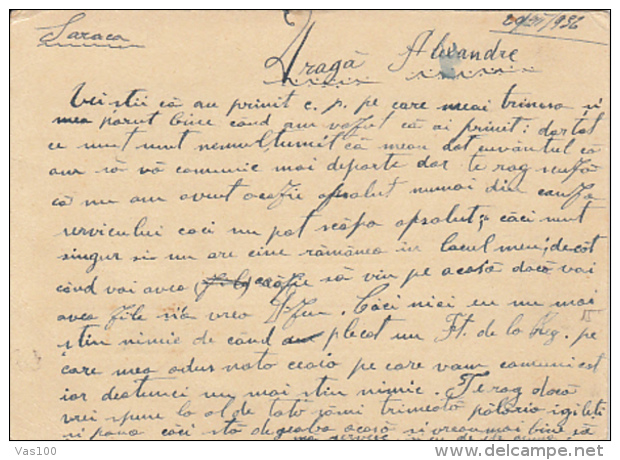 Saraca
29/XII/936
Dragă Alexandre
Vei stii că am primit c. p. pe care meai trimes și
mea părut bine când am văzut că ai primit: dar tot
ce mult sunt nemulțumit că meau dat cuvântul că
am să vă comunic mai departe dar te rog scuză
că nu am avut ocazie apsolut numai din cauza
serviciului caci nu pot scăpa apsolut; căci sunt
singur si nu are cine rămânea in locul meu; decât
când voi avea ocazie să vin pe acasă dacă voi
avea zile si a vrea D-zeu. Căci nici eu nu mai
știu nimic de când plecat un Ft. de la Reg. pe
care mea adus nato ceaio pe care vam comunicat
iar deatunci nu mai stiu nimic. Te rog dacă
vrei spune la al de tato sămi trimeată pălaria
si pana căci stă degeaba acasă si vreau mai bine să
Vas100
www.delcampe.net